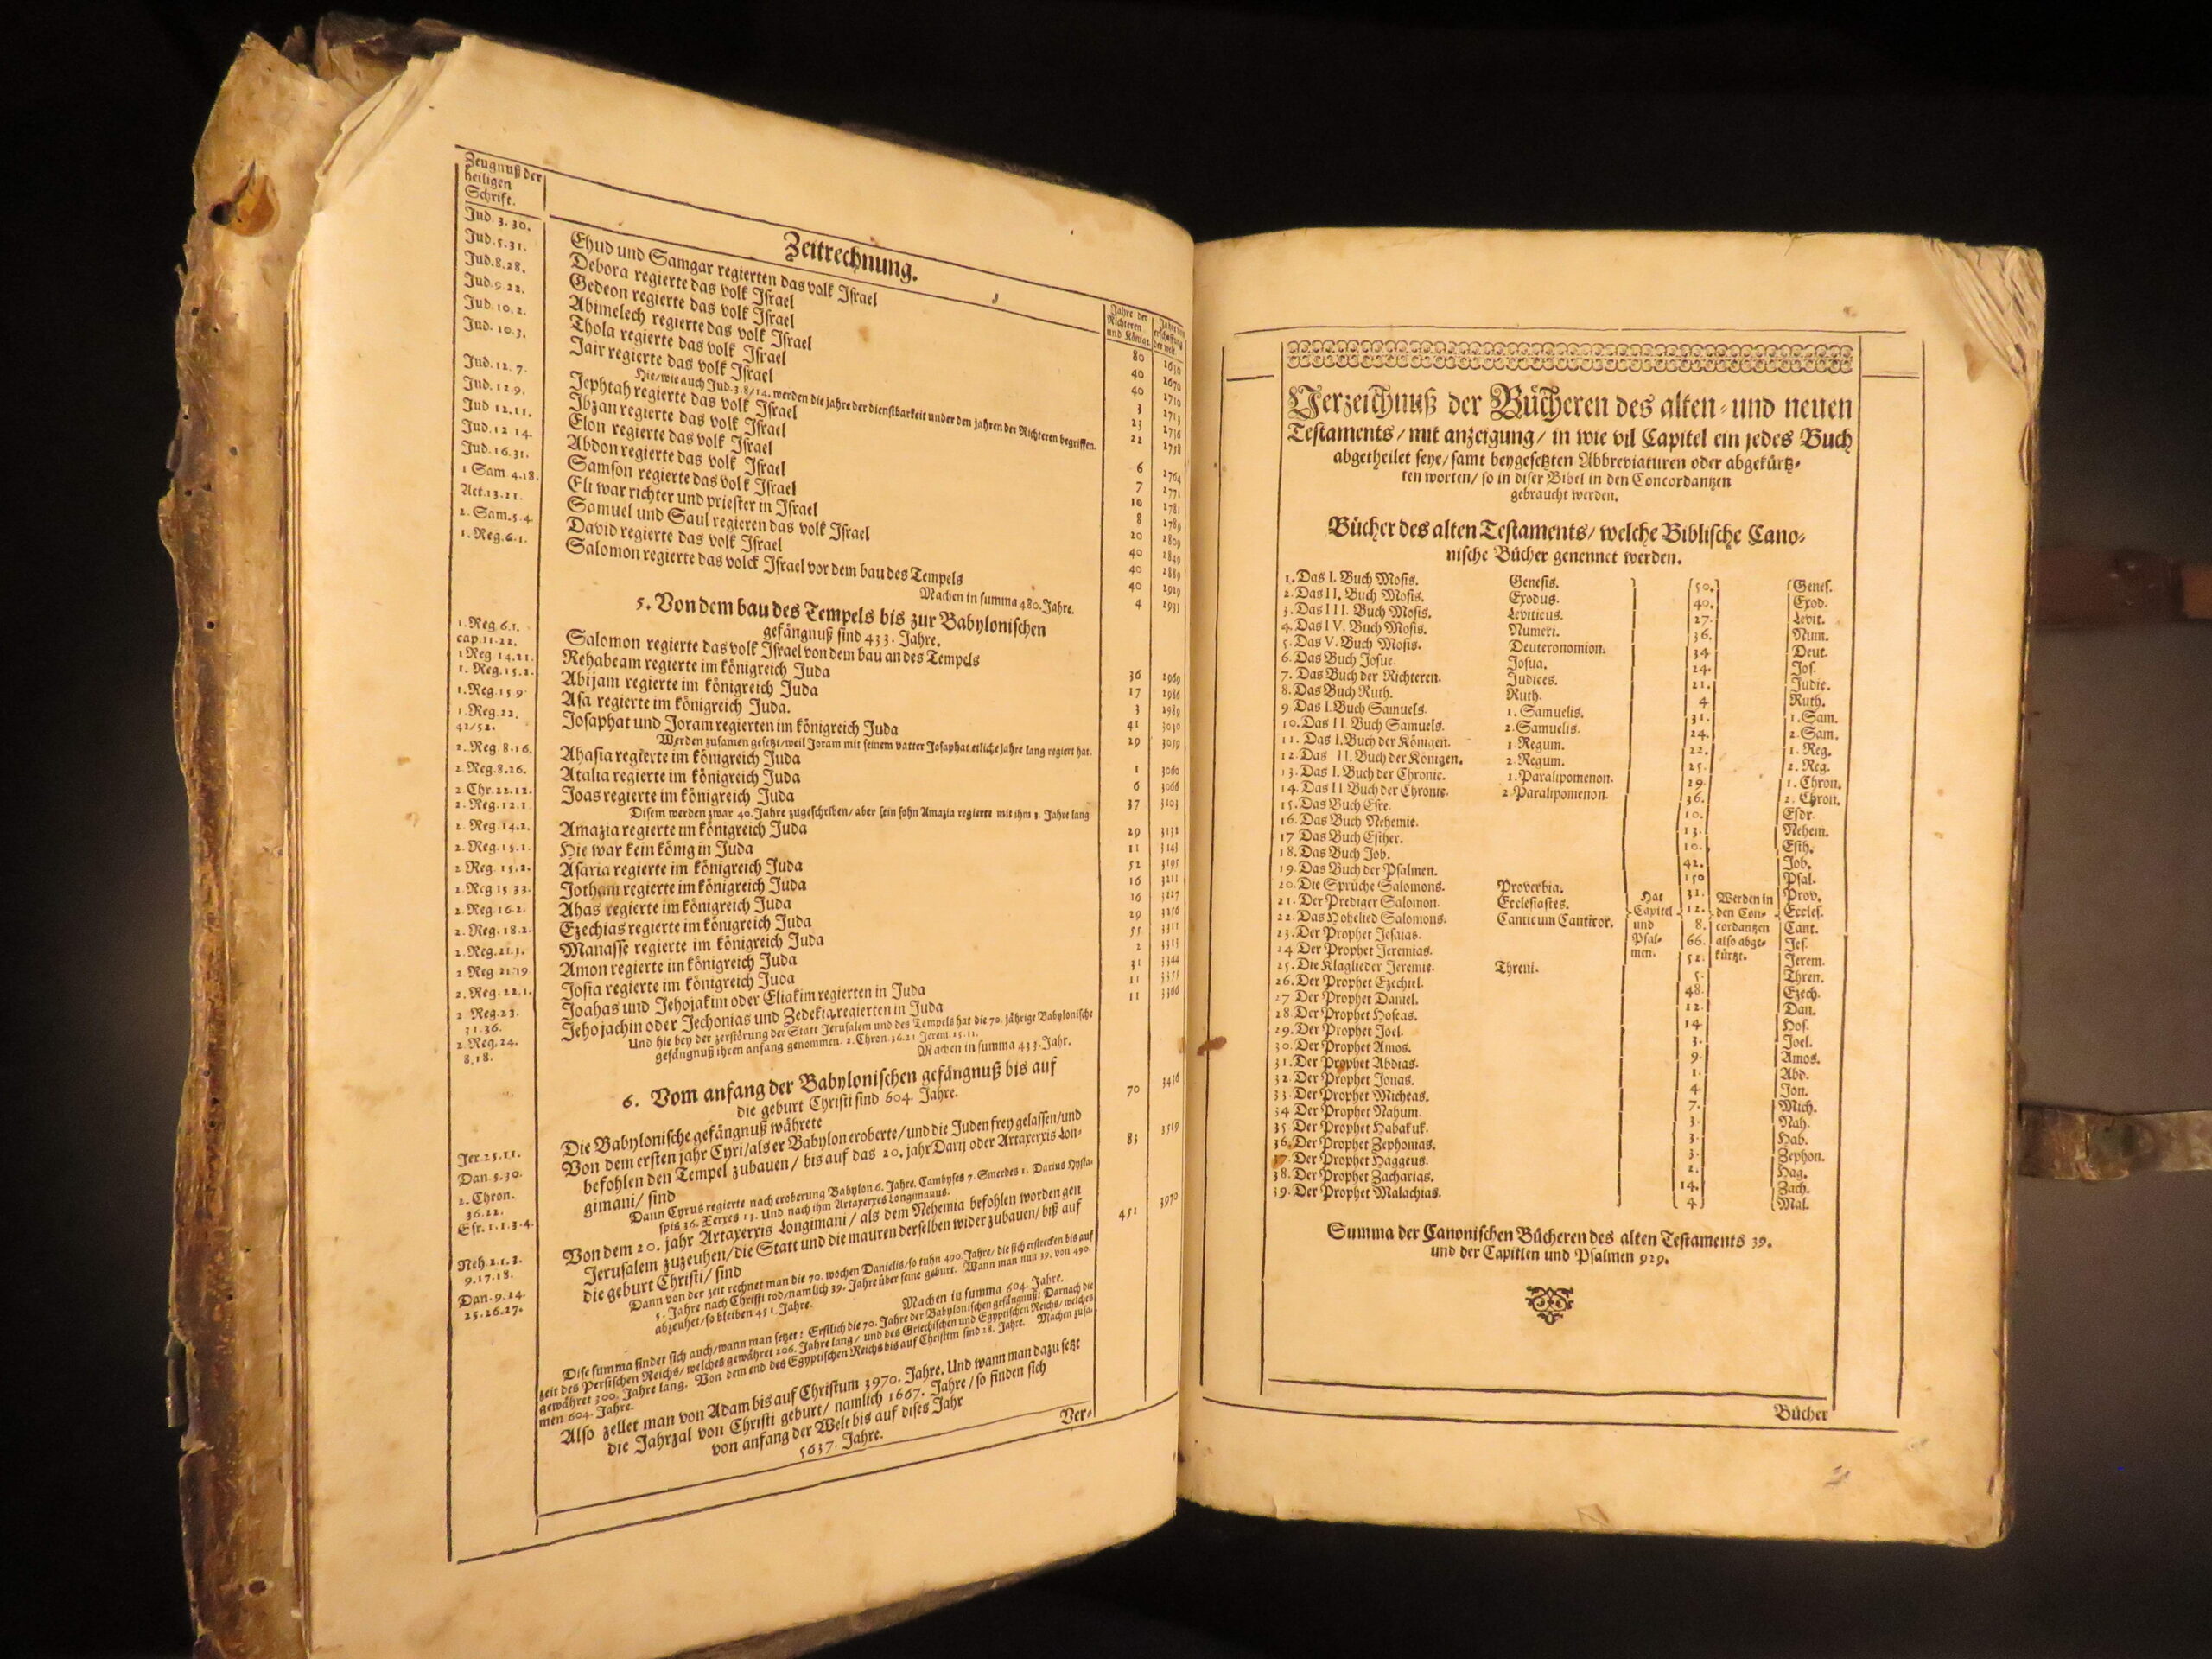 Zeugnuß der
heiligen
Schrift.
Zeitrechnung.
Jahre der
Richteren
und Könige
Jud. 3. 30. Ehud und Samgar regierten das volk Israel 80
Jud. 5. 31. Debora regierte das volk Israel 40 2670
Jud. 8. 28. Gedeon regierte das volk Israel 40 2710
Jud. 9. 22. Abimelech regierte das volk Israel 3 2713
Jud. 10. 2. Thola regierte das volk Israel 23 2736
Jud. 10. 3. Jair regierte das volk Israel 22 2758
Hie/ wie auch Jud. 3. 8/14. werden die jahre der dienstbarkeit under den jahren der Richteren begriffen.
Jud. 12. 7. Jephtah regierte das volk Israel 6 2764
Jud. 12. 9. Ibzan regierte das volk Israel 7 2771
Jud 12. 11. Elon regierte das volk Israel 10 2781
Jud. 12 14. Abdon regierte das volk Israel 8 2789
Jud. 16. 31. Samson regierte das volk Israel 20 2809
1 Sam 4. 18. Eli war richter und priester in Israel 40 2849
Act. 13. 21. Samuel und Saul regieren das volk Israel 40 2889
2. Sam. 5. 4. David regierte das volk Israel 40 2929
1. Reg. 6. 1. Salomon regierte das volck Israel vor dem bau des Tempels 4 2933
Machen in summa 480. Jahre.
5. Von dem bau des Tempels bis zur Babylonischen
gefängnuß sind 433. Jahre.
1. Reg. 6. 1.
cap. 11. 22. Salomon regierte das volk Israel von dem bau an des Tempels 36 2969
1 Reg 14. 21. Rehabeam regierte im königreich Juda 17 2986
1. Reg. 15. 2. Abijam regierte im königreich Juda 3 2989
1. Reg. 15 9. Asa regierte im königreich Juda. 41 3030
1. Reg. 22.
42/52. Josaphat und Joram regierten im königreich Juda 29 3059
Werden zusamen gesetzt/ weil Joram mit seinem vatter Josaphat etliche jahre lang regiert hat.
2. Reg. 8. 16. Ahasia regierte im königreich Juda 1 3060
2. Reg. 8. 26. Atalia regierte im königreich Juda 6 3066
2 Chr. 22. 12.
2. Reg. 12. 1. Joas regierte im königreich Juda 37 3103
Disem werden zwar 40. Jahre zugeschriben/ aber sein sohn Amazia regierte mit ihm 3. Jahre lang.
2. Reg. 14. 2. Amazia regierte im königreich Juda 29 3132
2. Reg. 15. 1. Hie war kein könig in Juda 11 3143
2 Reg. 15. 2. Asaria regierte im königreich Juda 52 3195
2. Reg 15 33. Jotham regierte im königreich Juda 16 3211
2. Reg. 16. 2. Ahas regierte im königreich Juda 16 3227
2. Reg. 18. 2. Ezechias regierte im königreich Juda 29 3256
2. Reg. 21. 1. Manasse regierte im königreich Juda 55 3311
2 Reg 21. 19 Amon regierte im königreich Juda 2 3313
2. Reg. 22. 1. Josia regierte im königreich Juda 31 3344
2 Reg. 23.
31. 36. Joahas und Jehojakim oder Eliakim regierten in Juda 11 3355
2. Reg. 24.
8. 18. Jehojachin oder Jechonias und Zedekia regierten in Juda 11 3366
Und hie bey der zerstörung der Statt Jerusalem und des Tempels hat die 70. jährige Babylonische
gefängnuß ihren anfang genommen. 2. Chron. 36. 21. Jerem. 25. 11.
Machen in summa 433. Jahr.
6. Vom anfang der Babylonischen gefängnuß bis auf
die geburt Christi sind 604. Jahre.
Jer. 25. 11. Die Babylonische gefängnuß währete 70 3436
Dan. 5. 30. Von dem ersten jahr Cyri/ als er Babylon eroberte/ und die Juden frey gelassen/ und
2. Chron.
36. 22. befohlen den Tempel zubauen/ bis auf das 20. jahr Darij oder Artaxerxis Lon-
Esr. 1. 1. 3. 4. gimani/ sind 83 3519
Dann Cyrus regierte nach eroberung Babylon 6. Jahre. Cambyses 7. Smerdes 1. Darius Hysta-
spis 36. Xerxes 13. Und nach ihm Artaxerxes Longimanus.
Neh. 2. 1. 3.
9. 17. 18. Von dem 20. jahr Artaxerxis Longimani/ als dem Nehemia befohlen worden gen
Jerusalem zuzeuhen/ die Statt und die mauren derselben wider zubauen/ biß auf
die geburt Christi/ sind 451 3970
Dan. 9. 24.
25. 26. 27. Dann von der zeit rechnet man die 70. wochen Danielis/ so tuhn 490. Jahre/ die sich erstrecken bis auf
5. Jahre nach Christi tod/ namlich 39. Jahre über seine geburt. Wann man nun 39. von 490.
abzeuhet/ so bleiben 451. Jahre.
Machen in summa 604. Jahre.
Dise summa findet sich auch/ wann man setzet: Erstlich die 70. Jahre der Babylonischen gefängnuß: Darnach die
zeit des Persischen Reichs/ welches gewähret 206. Jahre lang/ und des Griechischen und Egyptischen Reichs/ welches
gewähret 300. Jahre lang. Von dem end des Egyptischen Reichs bis auf Christum sind 28. Jahre. Machen zusa-
men 604. Jahre.
Also zellet man von Adam bis auf Christum 3970. Jahre. Und wann man dazu setzt
die Jahrzal von Christi geburt/ namlich 1667. Jahre/ so finden sich
von anfang der Welt bis auf dises Jahr
5637. Jahre.
Ver-
Verzeichnuß der Bücheren des alten- und neuen
Testaments/ mit anzeigung/ in wie vil Capitel ein jedes Buch
abgetheilet seye/ samt beygesetzten Abbreviaturen oder abgekürtz-
ten worten/ so in diser Bibel in den Concordantzen
gebraucht werden.
Bücher des alten Testaments/ welche Biblische Cano-
nische Bücher genennet werden.
1. Das I. Buch Mosis. Genesis. 50. Genes.
2. Das II. Buch Mosis. Exodus. 40. Exod.
3. Das III. Buch Mosis. Leviticus. 27. Levit.
4. Das IV. Buch Mosis. Numeri. 36. Num.
5. Das V. Buch Mosis. Deuteronomion. 34 Deut.
6. Das Buch Josue. Josua. 24. Jos.
7. Das Buch der Richteren. Judices. 21. Judic.
8. Das Buch Ruth. Ruth. 4 Ruth.
9 Das I. Buch Samuels. 1. Samuelis. 31. 1. Sam.
10. Das II Buch Samuels. 2. Samuelis. 24. 2. Sam.
11. Das I. Buch der Königen. 1. Regum. 22. 1. Reg.
12. Das II. Buch der Königen. 2. Regum. 25. 2. Reg.
13. Das I. Buch der Chronic. 1. Paralipomenon. 29. 1. Chron.
14. Das II Buch der Chronic. 2. Paralipomenon. 36. 2. Chron.
15. Das Buch Esre. 10. Esdr.
16. Das Buch Nehemie. 13. Nehem.
17 Das Buch Esther. 10. Esth.
18. Das Buch Job. 42. Job.
19. Das Buch der Psalmen. 150 Psal.
20. Die Sprüche Salomons. Proverbia. 31. Prov.
21. Der Prediger Salomon. Ecclesiastes. 12. Eccles.
22. Das Hohelied Salomons. Canticum Canticor. 8. Cant.
Hat
Capitel
und
Psal-
men.
Werden in
den Con-
cordantzen
also abge-
kürtzt.
23. Der Prophet Jesaias. 66. Jes.
24 Der Prophet Jeremias. 52. Jerem.
25. Die Klaglieder Jeremie. Threni. 5. Thren.
26. Der Prophet Ezechiel. 48. Ezech.
27 Der Prophet Daniel. 12. Dan.
28 Der Prophet Hoseas. 14. Hos.
29. Der Prophet Joel. 3. Joel.
30. Der Prophet Amos. 9. Amos.
31. Der Prophet Abdias. 1. Abd.
32. Der Prophet Jonas. 4 Jon.
33. Der Prophet Micheas. 7. Mich.
34 Der Prophet Nahum. 3. Nah.
35 Der Prophet Habakuk. 3. Hab.
36. Der Prophet Zephonias. 3. Zephon.
37 Der Prophet Haggeus. 2. Hag.
38. Der Prophet Zacharias. 14. Zach.
39. Der Prophet Malachias. 4 Mal.
Summa der Canonischen Bücheren des alten Testaments 39.
und der Capitlen und Psalmen 929.
Bücher